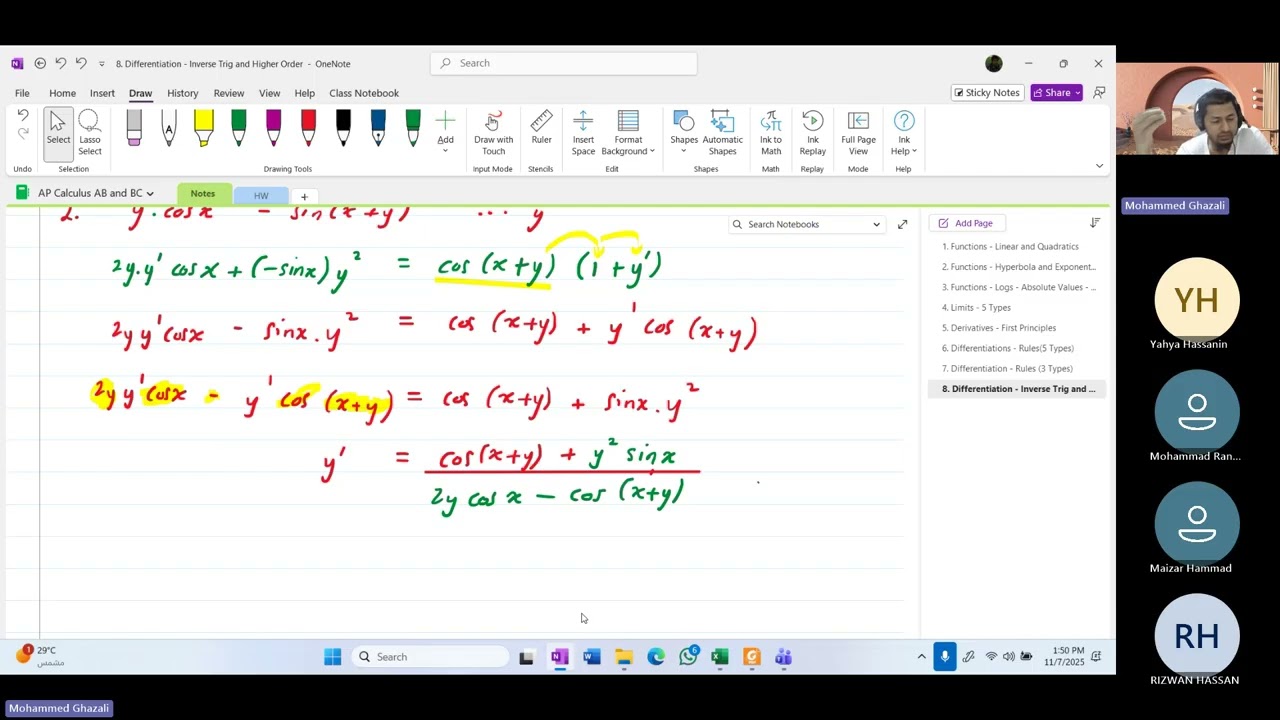 8. Differentiation - Inverse Trig and Higher Order - OneNote
Search
File Home Insert Draw History Review View Help Class Notebook
Sticky Notes Share
Select
Lasso Select
Add
Draw with Touch
Ruler
Insert Space
Format Background
Shapes
Automatic Shapes
Ink to Math
Ink Replay
Full Page View
Ink Help
Undo Selection Drawing Tools Input Mode Stencils Edit Shapes Math Replay Mode Help
AP Calculus AB and BC Notes HW +
Search Notebooks
Add Page
1. Functions - Linear and Quadratics
2. Functions - Hyperbola and Exponent...
3. Functions - Logs - Absolute Values - ...
4. Limits - 5 Types
5. Derivatives - First Principles
6. Differentiations - Rules(5 Types)
7. Differentiation - Rules (3 Types)
8. Differentiation - Inverse Trig and ...
2. y . cosx = sin(x+y) ... y
2y.y' cosx + (-sinx) y² = cos (x+y) (1 + y')
2y y' cosx - sinx . y² = cos (x+y) + y' cos (x+y)
2y y' cosx - y' cos (x+y) = cos (x+y) + sinx . y²
y' = cos(x+y) + y² sinx
2y cos x - cos (x+y)
1
29°C
مشمس
Search
6
1:50 PM
11/7/2025
Mohammed Ghazali
YH
Yahya Hassanin
Mohammad Ran...
Maizar Hammad
RH
RIZWAN HASSAN
Mohammed Ghazali